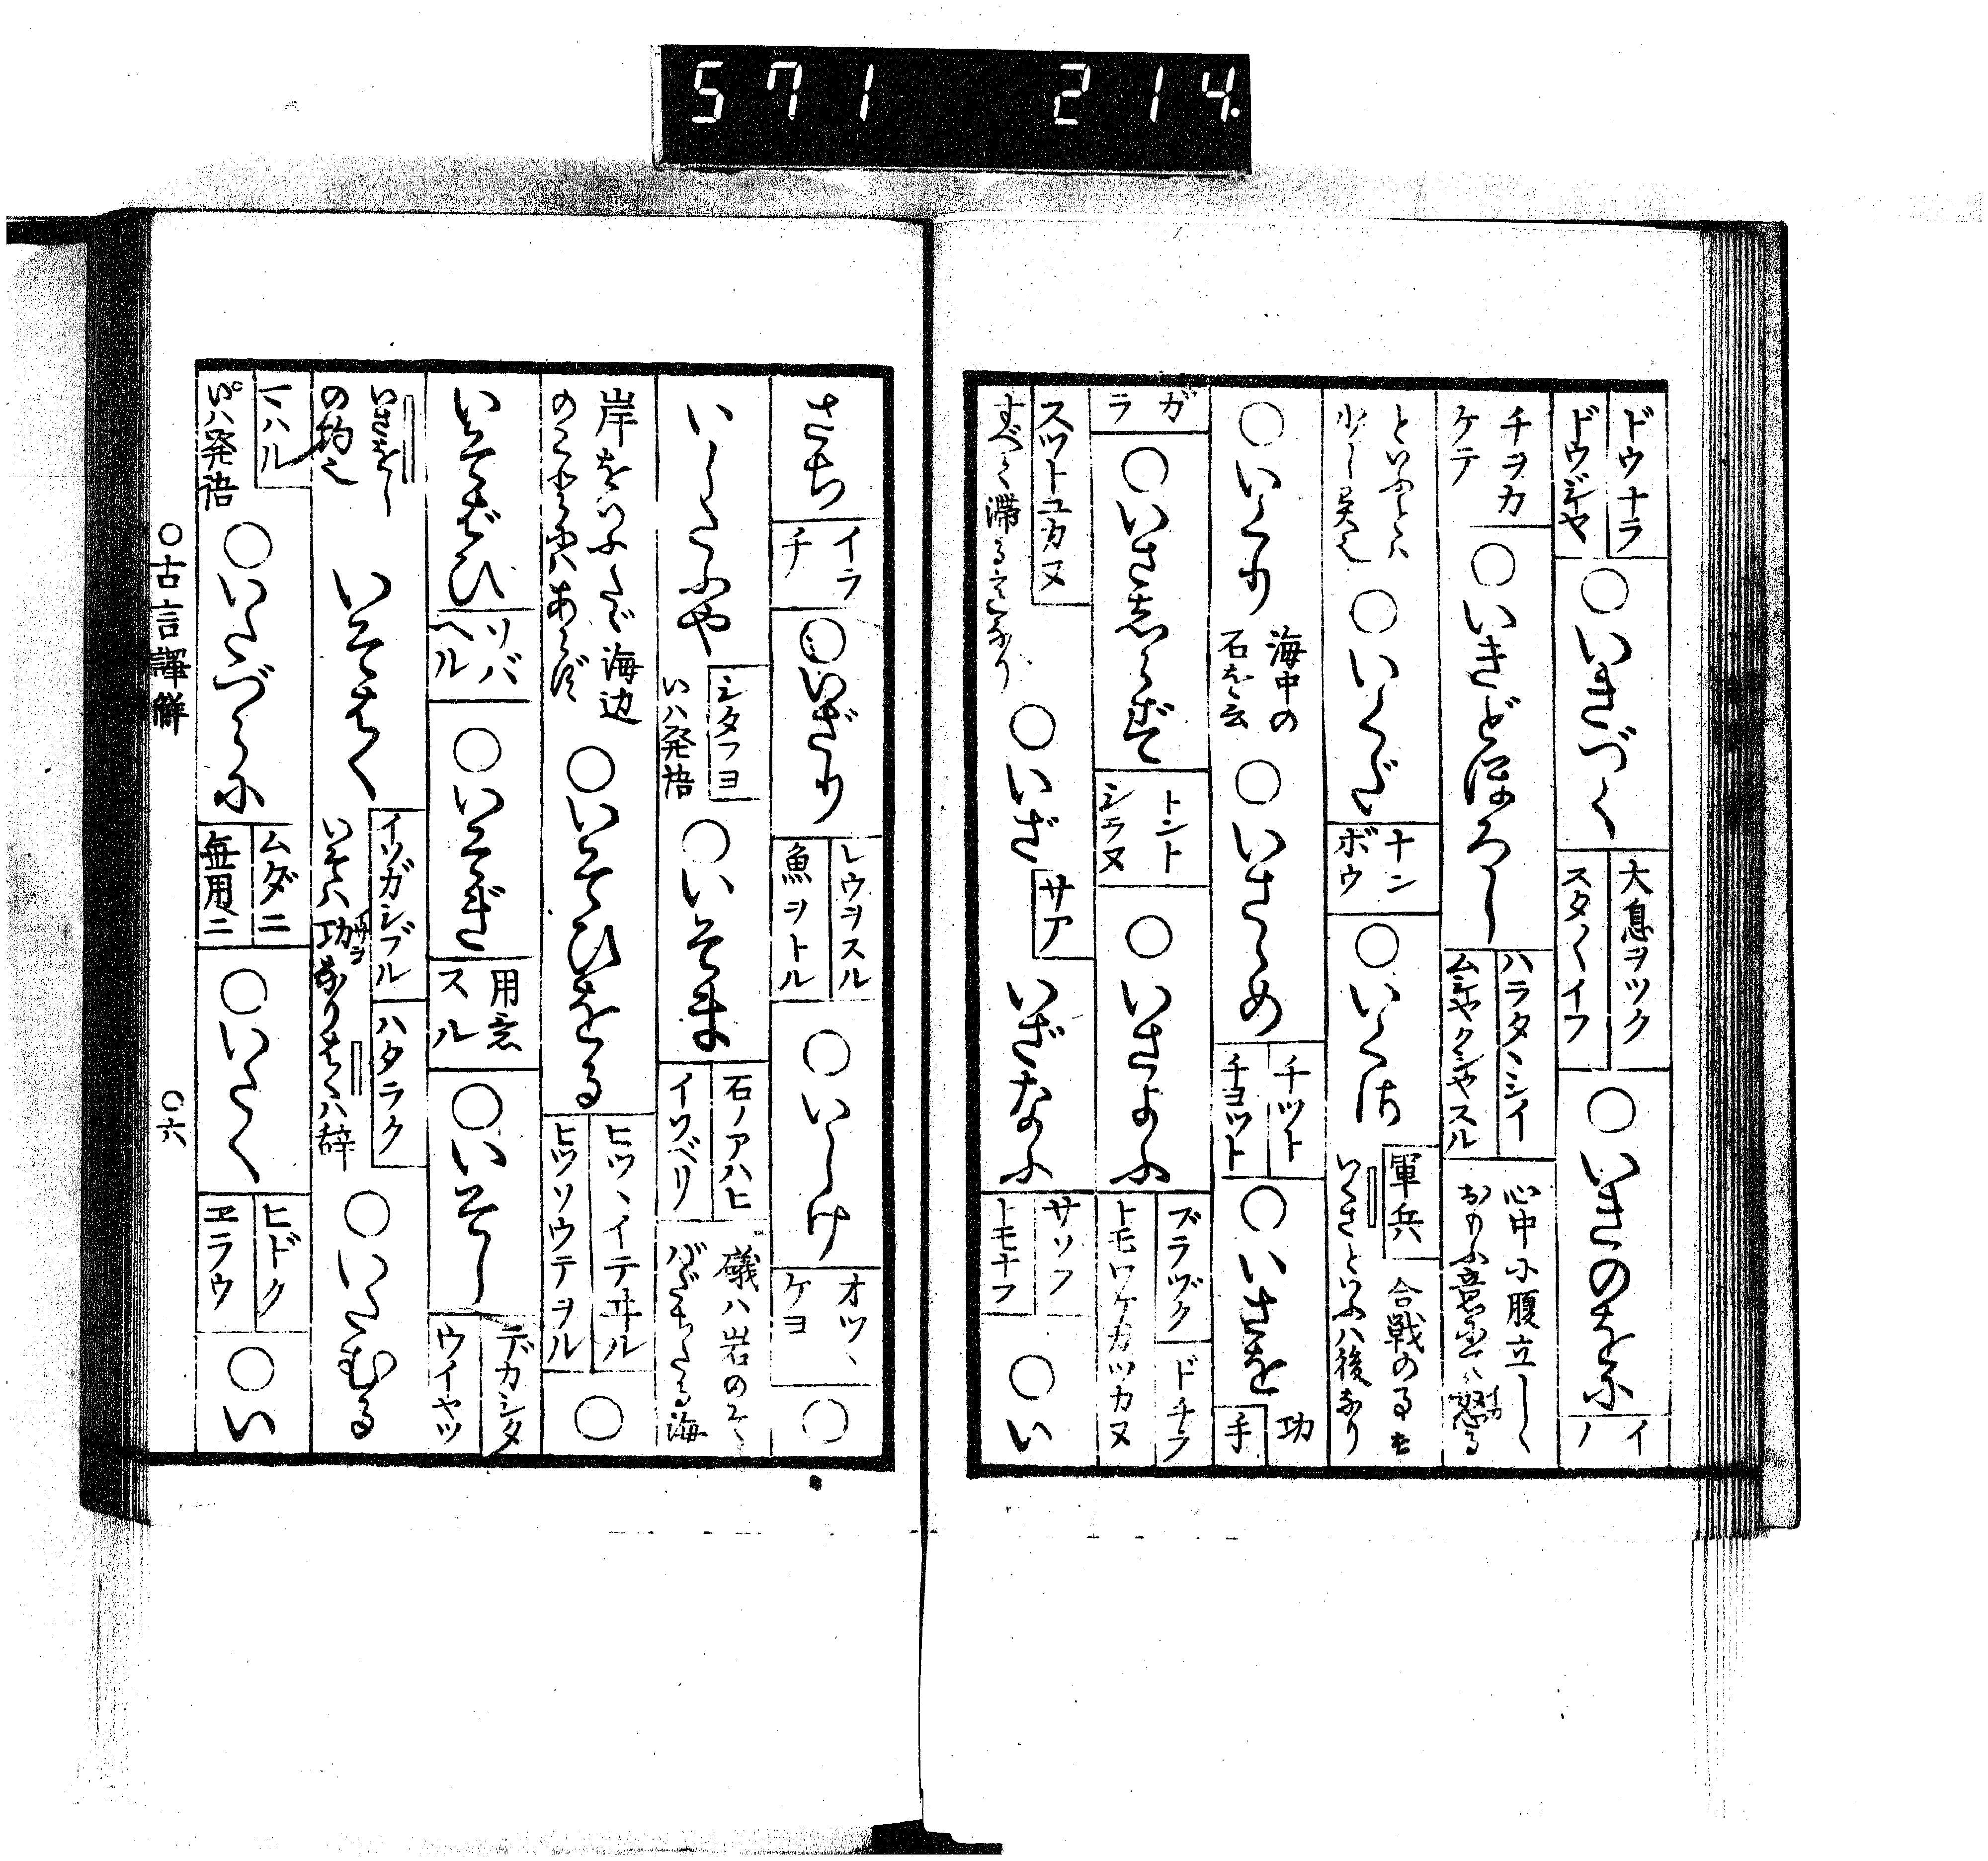 571 214.
ドウナラ
ドウジヤ
○いきづく
大息ヲツク
スタ〳〵イフ
○いきのをに
イ
ノ
チヲカ
ケテ
○いきどほろし
ハラタヽシイ
ムシヤクシヤスル
心中に腹立し
といふとハ
少し異也
○いくだ
ナン
ボウ
○いくさ
軍兵
合戦の
いくさといふハ後なり
○いくり
海中の
石を云
○いさゝめ
チツト
チヨツト
○いさを
功
手
ガ
ラ
○いさしらずて
トント
シラヌ
○いさよふ
ズラヅク
ドチラ
トモワケカツカヌ
スツトユカヌ
すべて滞る意なり
○いざ
サア
いざなふ
サソフ
トモナフ
○い
さち
イラ
チ
○いざり
レウヲスル
魚ヲトル
○いしけ
オツヽ
ケヨ
○
いしたふや
シタフヨ
いハ発語
○いそま
石ノアハヒ
イソベリ
磯ハ岩の
海
岸をいふたゞ海辺
のことにハあらず
○いそひをる
ヒツヽイテヰル
ヒツソウテヲル
○
いそばひ
ソバ
ヘル
○いそぎ
用意
スル
○いそし
デカシタ
ウイヤツ
いさをし
の約也
いそはく
イソガシブル
ハタラク
いそハ功なりはくハ辞
○いたむる
マハル
いハ発語
○いたづらに
ムダニ
無用ニ
○いたく
ヒドク
ヱラウ
○い
○古言譯解
○六